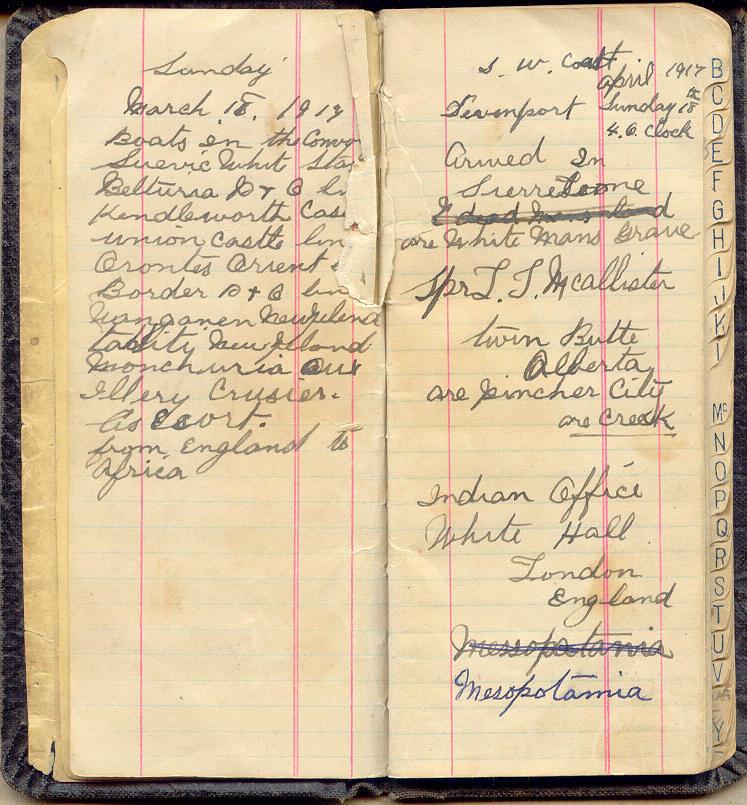 Sunday
March. 18. 1917
Boats in the Convo
Suevic Whit Sta
Belturia P & O lin
Kendleworth Cas
union castle lin
Orontes Orient
Border P & O lin
New Zeland
tahiti New Zelland
Monchuria
Crusier.
As Escort.
from England to
Africa
S. W. Coast
april 1917
Devenport Sunday 18
4. O. Clock
Arived In
Sierre Leone
are White Mans Grave
Spr L. J. McAllister
twin Butte
Alberta
are Pincher City
are Creek
Indian Office
White Hall
London
England
Messopotamia
Mesopotamia
B
C
D
E
F
G
H
I
J
K
L
Mc
N
O
P
Q
R
S
T
U
V
Y